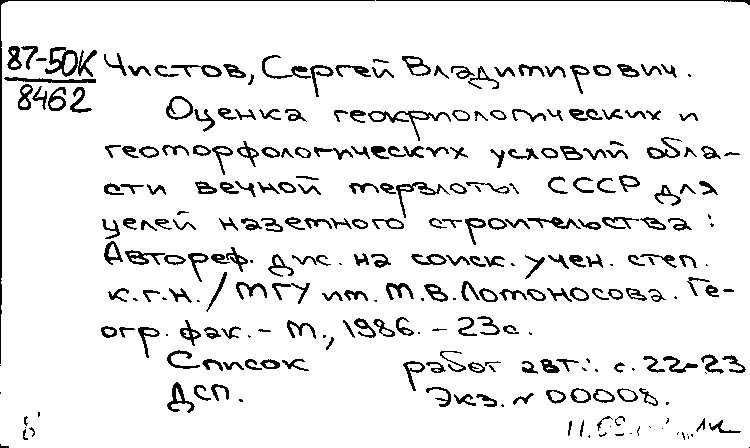 87-50К Чистов, Сергей Владимирович.
8462
Оценка геокриологических и
геоморфологических условий обла-
сти вечной мерзлоты СССР для
целей наземного строительства :
Автореф. дис. на соиск. учен. степ.
к.г.н. / МГУ им. М.В.Ломоносова. Ге-
огр. фак. - М., 1986. - 23с.
Список работ авт.: с. 22-23
ДСП. Экз. N 00008.